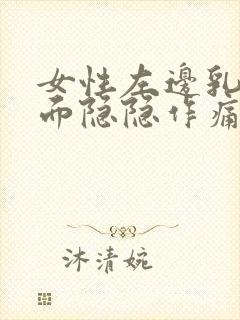 女性左邊乳
而隐隐作痛
沐清婉